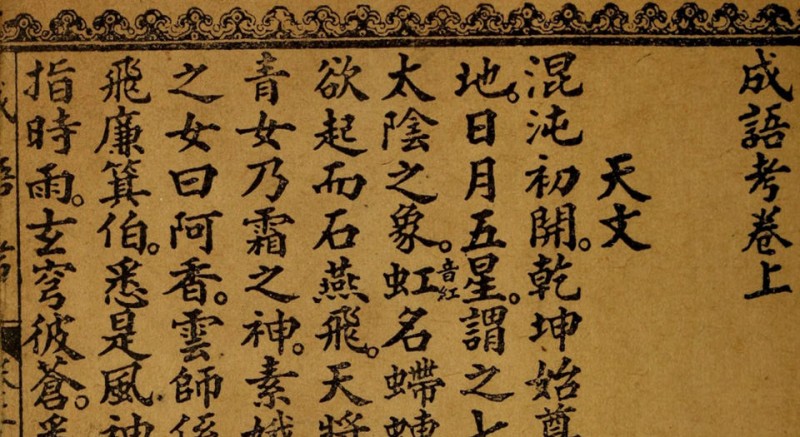 成語考卷上
天文
混沌初開。乾坤始尊
地。日月五星。謂之七
太陰之象。虹音紅名螮蝀
欲起而石燕飛。天將
青女乃霜之神。素娥
之女曰阿香。雲師係
飛廉箕伯。悉是風神
指時雨。玄穹彼蒼。